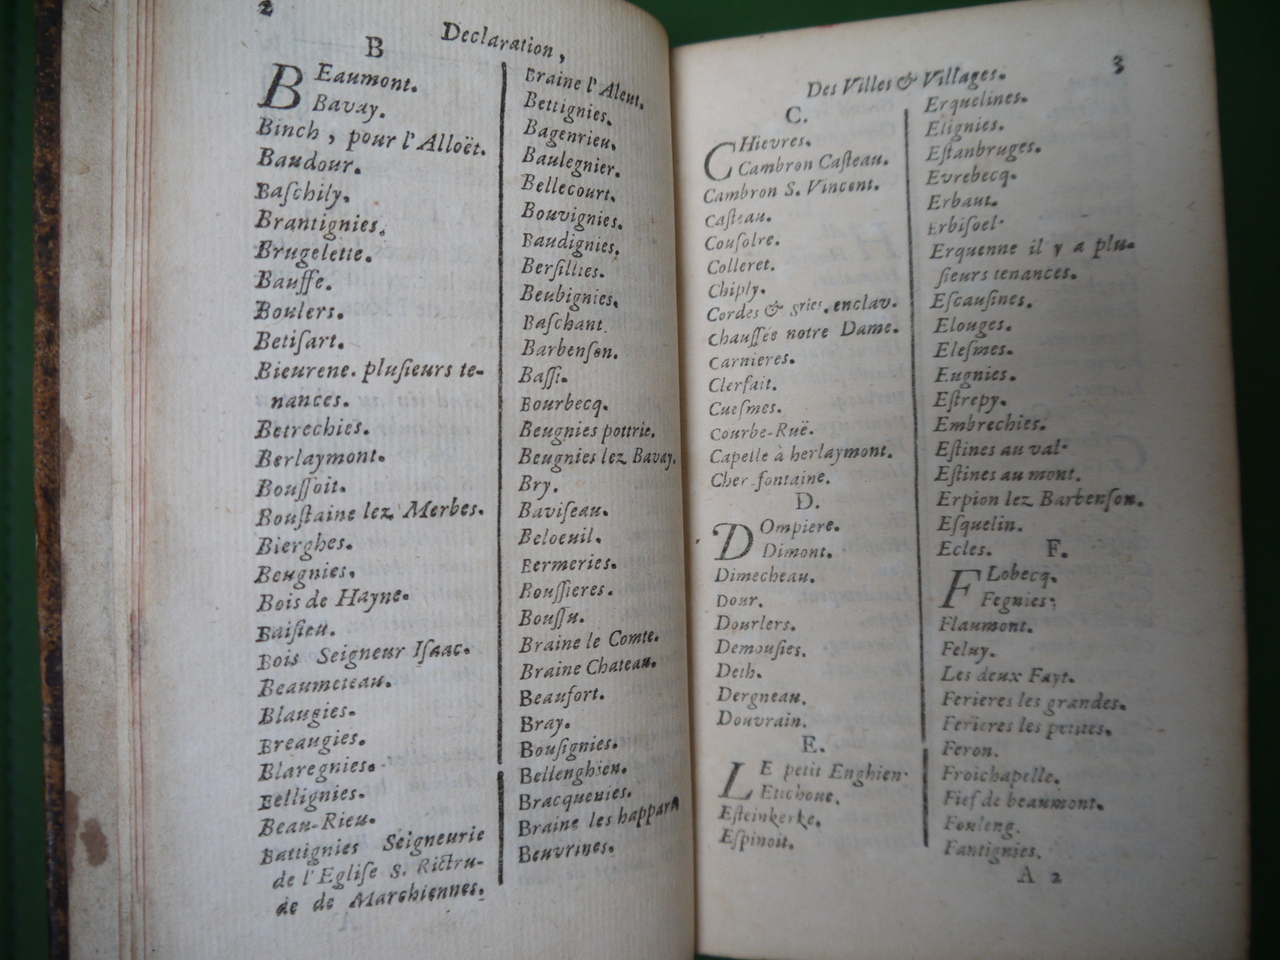 2
Declaration,
B
BEaumont.
Bavay.
Binch, pour l'Alloët.
Baudour.
Baſchily.
Brantignies.
Brugelette.
Bauffe.
Boulers.
Betiſart.
Bieurene. pluſieurs te-
nances.
Betrechies.
Berlaymont.
Bouſſoit.
Bouſtaine lez Merbes.
Bierghes.
Beugnies.
Bois de Hayne.
Baiſieu.
Bois Seigneur Iſaac.
Beaumeteau.
Blaugies.
Breaugies.
Blaregnies.
Bellignies.
Beau-Rieu.
Battignies Seigneurie
de l'Egliſe S. Rictru-
de de Marchiennes.
Braine l'Aleut.
Bettignies.
Bagenrieu.
Baulegnier.
Bellecourt.
Bouvignies.
Baudignies.
Berſillies.
Beubignies.
Baſchant.
Barbenſon.
Baſſi.
Bourbecq.
Beugnies pottrie.
Beugnies lez Bavay.
Bry.
Baviſeau.
Beloeuil.
Bermeries.
Bouſſieres.
Bouſſu.
Braine le Comte.
Braine Chateau.
Beaufort.
Bray.
Bouſignies.
Bellenghien.
Bracquenies.
Braine les happart
Beuvrines.
Des Villes & Villages.
3
C.
CHievres.
Cambron Caſteau.
Cambron S. Vincent.
Caſteau.
Couſolre.
Colleret.
Chiply.
Cordes & gries, enclav.
Chauſſée notre Dame.
Carnieres.
Clerfait.
Cueſmes.
Courbe-Ruë.
Capelle à herlaymont.
Cher fontaine.
D.
DOmpiere.
Dimont.
Dimecheau.
Dour.
Dourlers.
Demouſies.
Deth.
Dergneau.
Douvrain.
E.
LE petit Enghien.
Etichove.
Eſteinkerke.
Eſpinoit.
Erquelines.
Elignies.
Eſtanbruges.
Evrebecq.
Erbaut.
Erbiſoel.
Erquenne il y a plu-
ſieurs tenances.
Eſcauſines.
Elouges.
Eleſmes.
Eugnies.
Eſtrepy.
Embrechies.
Eſtines au val.
Eſtines au mont.
Erpion lez Barbenſon.
Eſquelin.
Ecles.
F.
FLobecq.
Fegnies.
Flaumont.
Feluy.
Les deux Fayt.
Ferieres les grandes.
Ferieres les petites.
Feron.
Froichapelle.
Fief de beaumont.
Fouleng.
Fantignies.
A 2